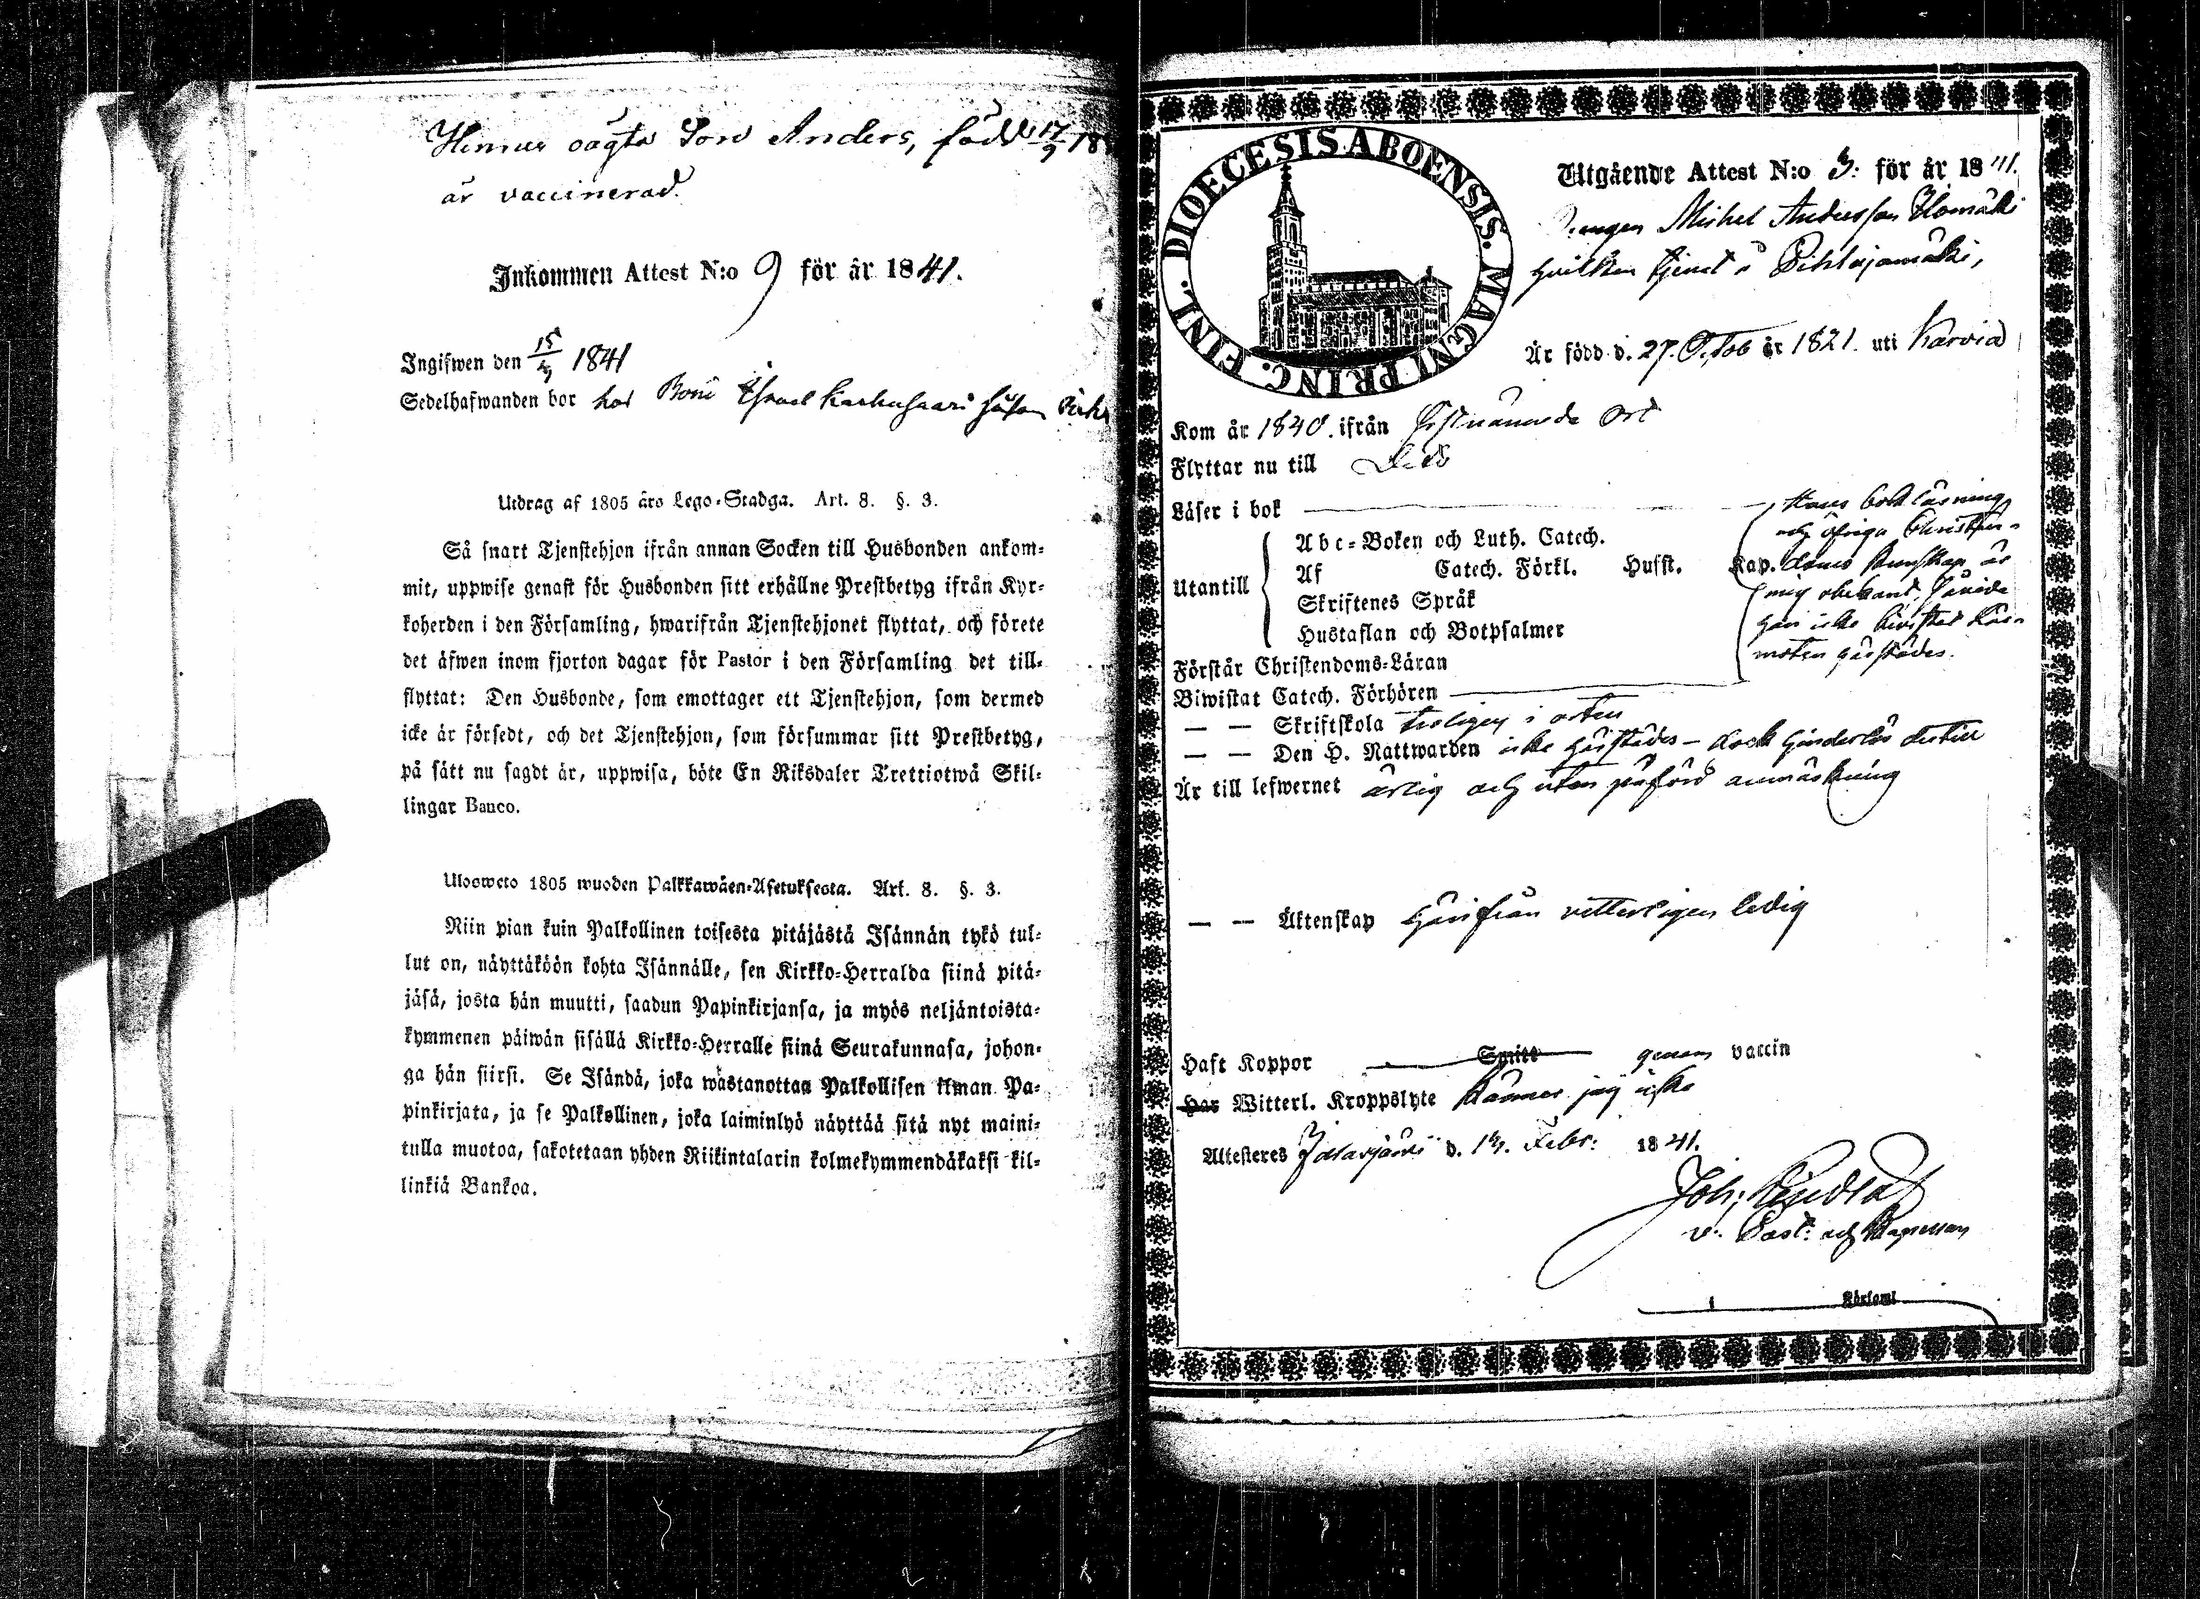 Hennes oägta Son Anders, född 17/9 18
är vaccinerad.
Inkommen Attest N:o 9 för år 1841.
Ingifwen den 15/4 1841
Sedelhafwanden bor hos Bond Israel Karhusaari
Utdrag af 1805 års Lego-Stadga. Art. 8. §. 3.
Så snart Tjenstehjon ifrån annan Socken till Husbonden ankom-
mit, uppwise genast för Husbonden sitt erhållne Prestbetyg ifrån Kyr-
koherden i den Församling, hwarifrån Tjenstehjonet flyttat, och förete
det äfwen inom fjorton dagar för Pastor i den Församling det till-
flyttat: Den Husbonde, som emottager ett Tjenstehjon, som dermed
icke är försedt, och det Tjenstehjon, som försummar sitt Prestbetyg,
på sätt nu sagdt är, uppwisa, böte En Riksdaler Trettiotwå Skil-
lingar Banco.
Ulosweto 1805 wuoden Palkkawäen-Asetuksesta. Art. 8. §. 3.
Niin pian kuin Palkollinen toisesta pitäjästä Isännän tykö tul-
lut on, näyttäköön kohta Isännälle, sen Kirkko-Herralda siinä pitä-
jäsä, josta hän muutti, saadun Papinkirjansa, ja myös neljäntoista-
kymmenen päiwän sisällä Kirkko-Herralle siinä Seurakunnasa, johon-
ga hän siirsi. Se Isändä, joka wastanottaa Palkollisen ilman Pa-
pinkirjata, ja se Palkollinen, joka laiminlyö näyttää sitä nyt maini-
tulla muotoa, sakotetaan yhden Riikintalarin kolmekymmendäkaksi kil-
linkiä Bankoa.
DIOECESIS ABOENSIS. MAGNI PRINC. FINL.
Utgående Attest N:o 3. för år 1841.
Drängen Michel Andersson
hvilken tjent i Pihlajamäki,
Är född d. 27. Octob år 1821. uti Karvia
Kom år 1840. ifrån sistnämnde ort
Flyttar nu till Dito
Läser i bok
Hans bokläsning
och öfriga Christen-
doms kunskap är
mig obekant, såvida
han icke bivistat Läse-
möten härstädes.
Utantill
Abc-Boken och Luth. Catech.
Af Catech. Förkl. Husst. Kap.
Skriftenes Språk
Hustaflan och Botpsalmer
Förstår Christendoms-Läran
Biwistat Catech. Förhören
— — Skriftskola troligen i orten
— — Den H. Nattwarden icke härstädes – dock hinderlös dertill
Är till lefwernet ärlig och utan påförd anmärkning
— — Äktenskap härifrån vetterligen ledig
Haft Koppor Smitt genom vaccin
Har Witterl. Kroppslyte känner jag icke
Attesteres d. Febr: 1841.
Joh:
v. Past: och Kapellan
Församl